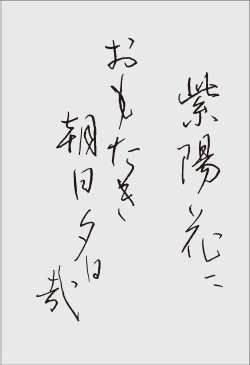 紫陽花に
おもたき
朝日夕日
哉